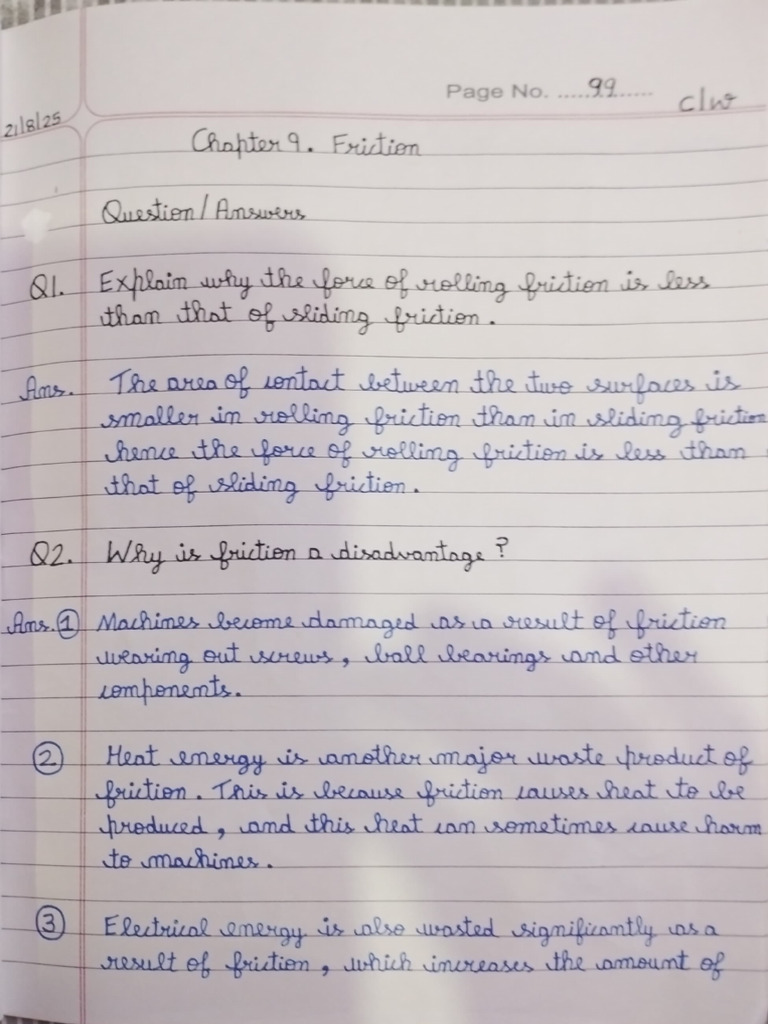 Page No. .....99......
c/w
21/8/25
Chapter 9. Friction
Question/Answers
Q1. Explain why the force of rolling friction is less
than that of sliding friction.
Ans. The area of contact between the two surfaces is
smaller in rolling friction than in sliding friction
hence the force of rolling friction is less than
that of sliding friction.
Q2. Why is friction a disadvantage?
Ans. ① Machines become damaged as a result of friction
wearing out screws, ball bearings and other
components.
② Heat energy is another major waste product of
friction. This is because friction causes heat to be
produced, and this heat can sometimes cause harm
to machines.
③ Electrical energy is also wasted significantly as a
result of friction, which increases the amount of